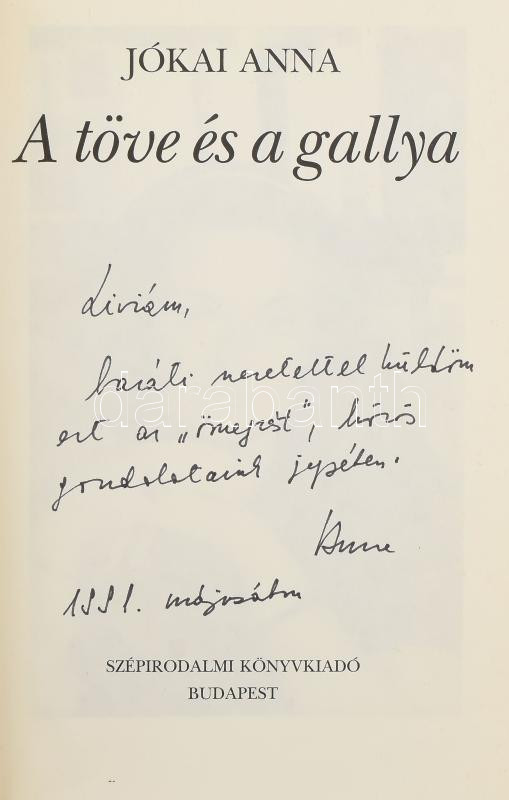 JÓKAI ANNA
A töve és a gallya
Líviám,
baráti szeretettel küldöm
ezt az „összegzést”, közös
gondolataink jegyében.
Anna
1991. májusában
SZÉPIRODALMI KÖNYVKIADÓ
BUDAPEST
darabanth